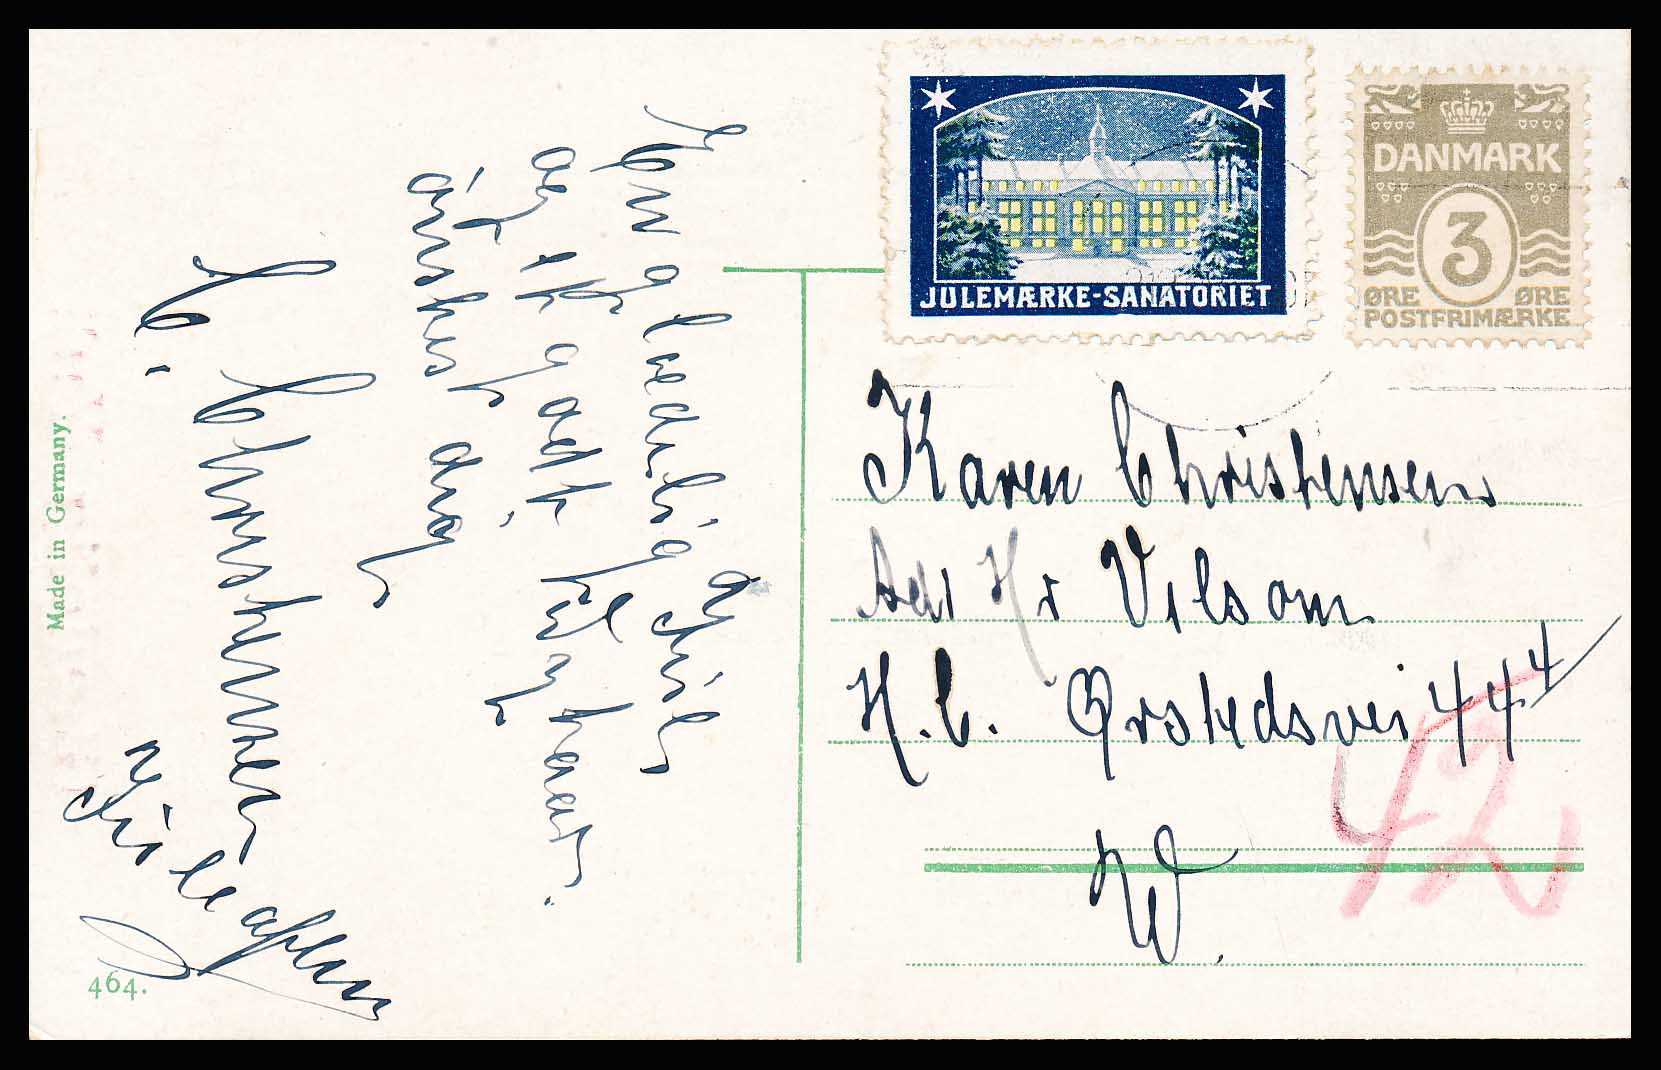 En glædelig Jul
og et godt Nytaar
ønskes dig
C. Christensen
Made in Germany.
464.
JULEMÆRKE-SANATORIET
DANMARK
3
ØRE ØRE
POSTFRIMÆRKE
Karen Christensen
Adr Hr Vilsom
H.C. Ørstedsvei 44⁴
W.
42